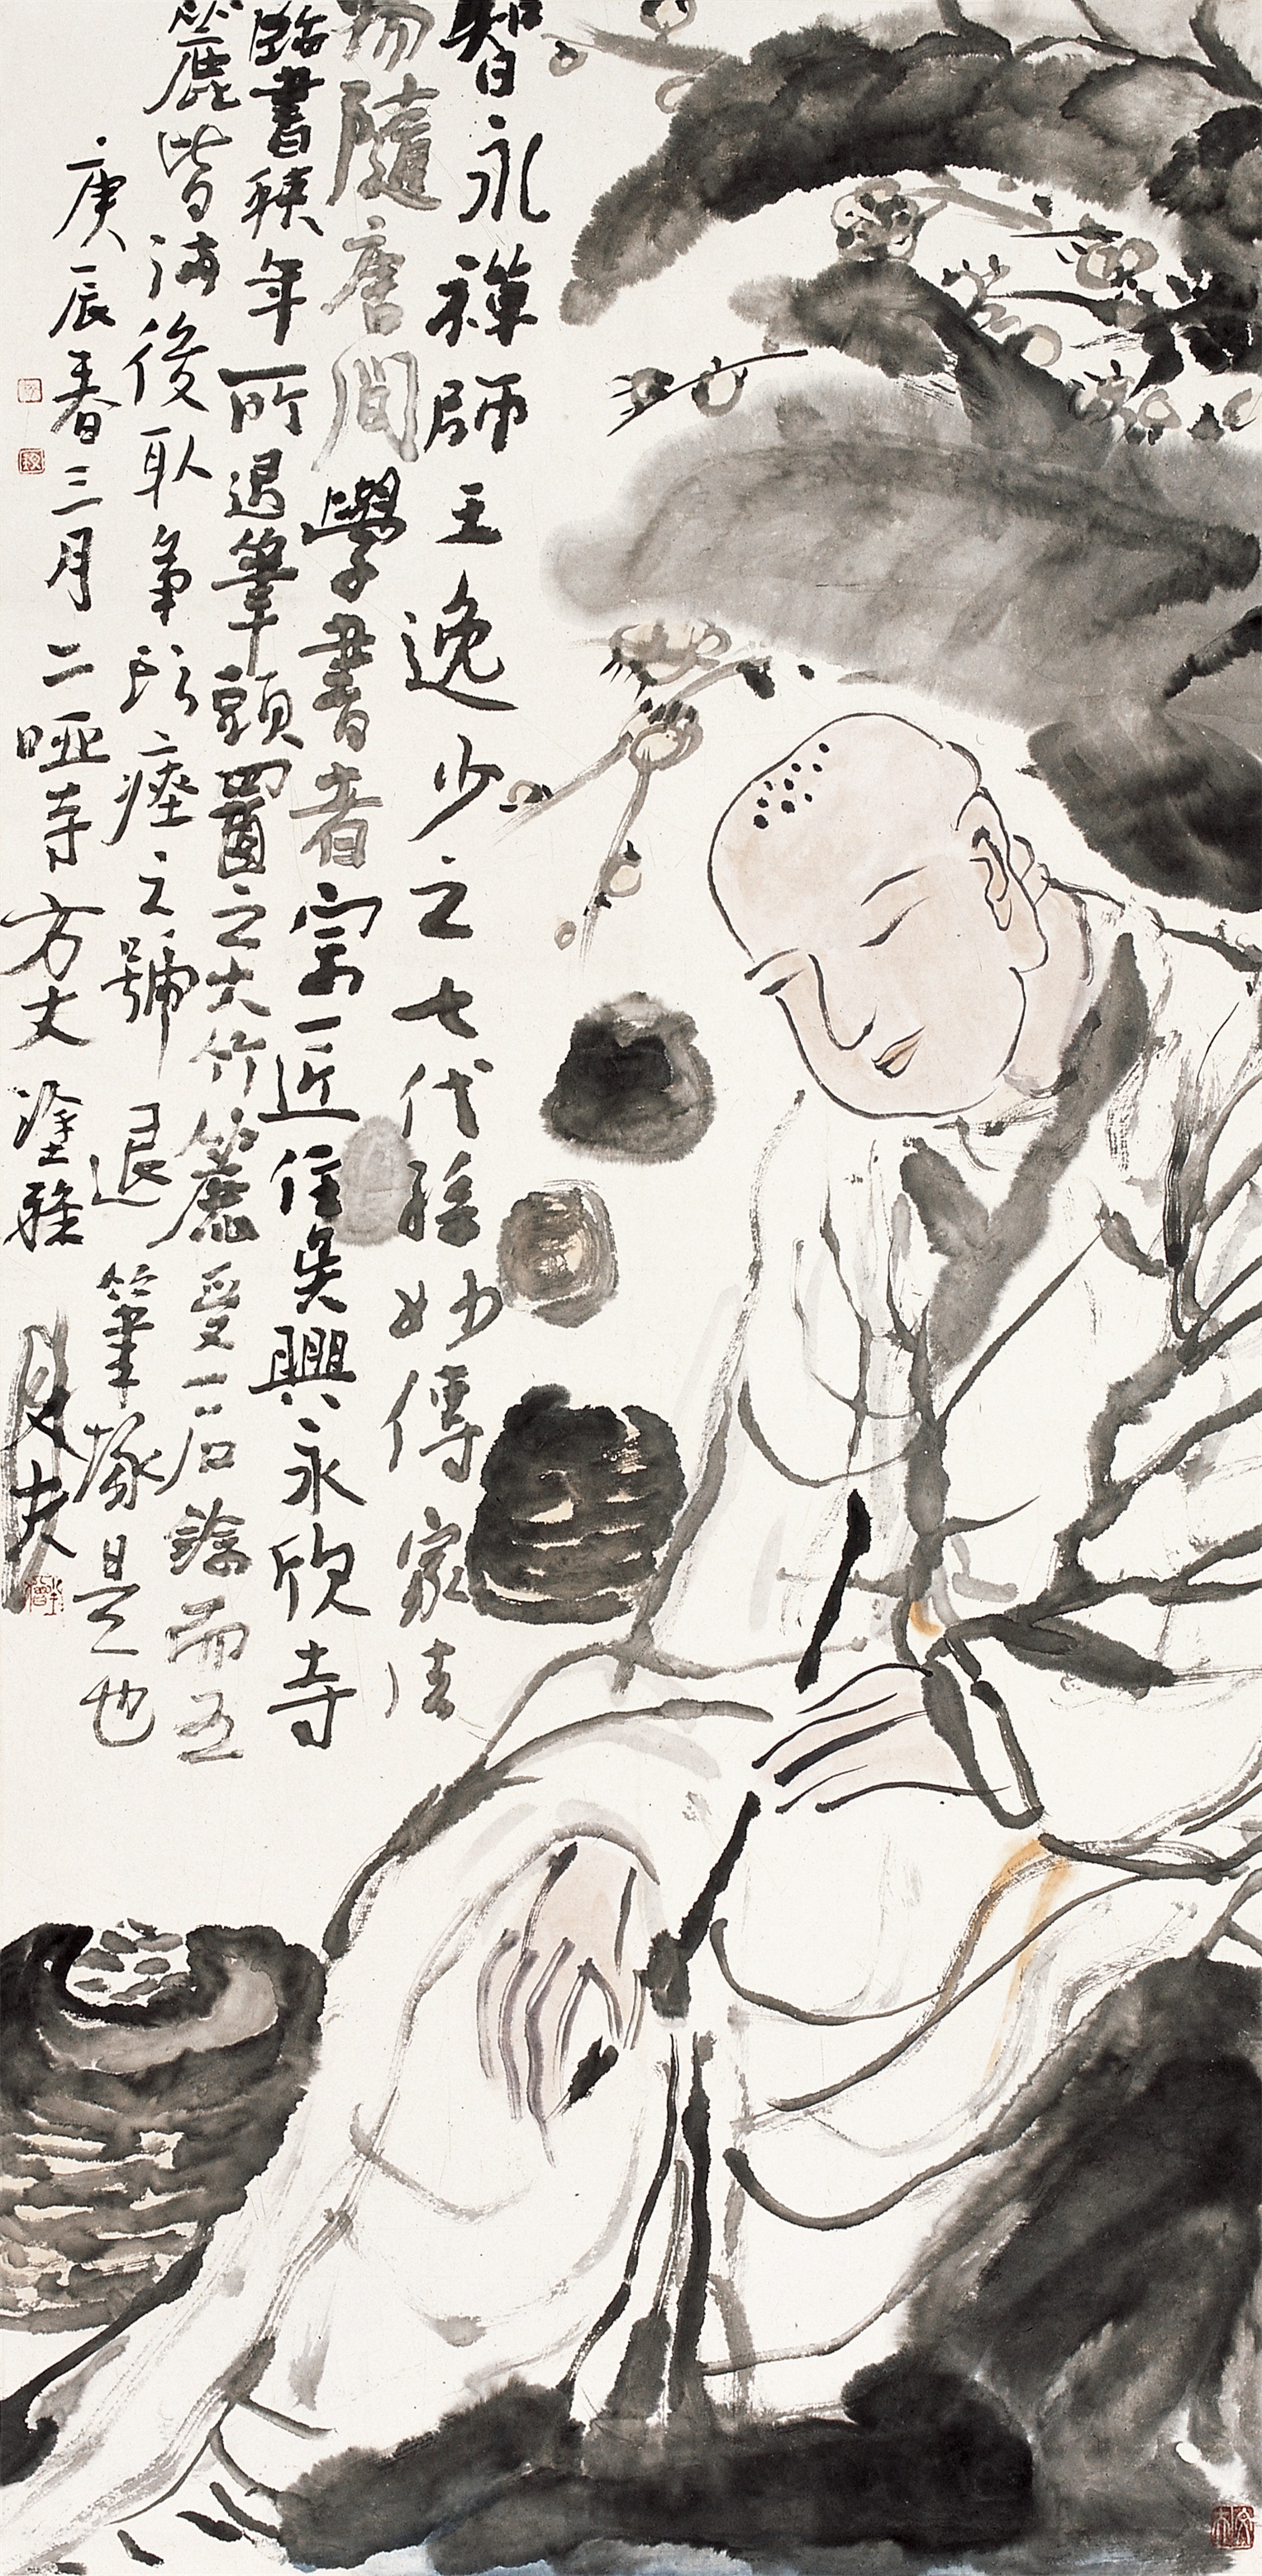 智永禪師王逸少之七代孫妙傳家法
為隨唐間學書者宗匠住吳興永欣寺
臨書積年所退筆頭置之大竹簏受一石餘而五
簏皆滿後取筆頭瘞之號退筆塚是也
庚辰春三月二啞寺方丈塗鴉